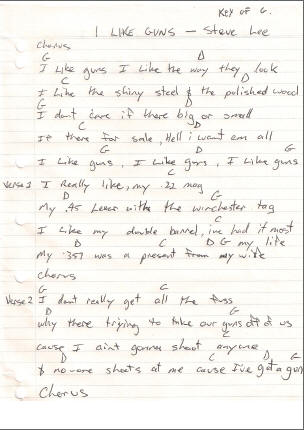 KEY OF G.
I LIKE GUNS – Steve Lee
Chorus
G D
I Like guns I Like the way they look
C D
I Like the shiny steel & the polished wood
G D
I dont care if there big or small
C D
If there for sale, Hell i want em all
G D G
I Like guns, I Like guns, I Like guns
C
Verse 1 I Really like, my .22 mag
D G
My .45 Lever with the winchester tag
C
I Like my double barrel, ive had it most
D C D G my life
My .357 was a present from my wife
Chorus
G C
Verse 2 I dont really get all the fuss
D G
why there trying to take our guns off of us
C
cause I aint gonna shoot anyone
D C D G
& no-one shoots at me cause I've got a gun
Chorus